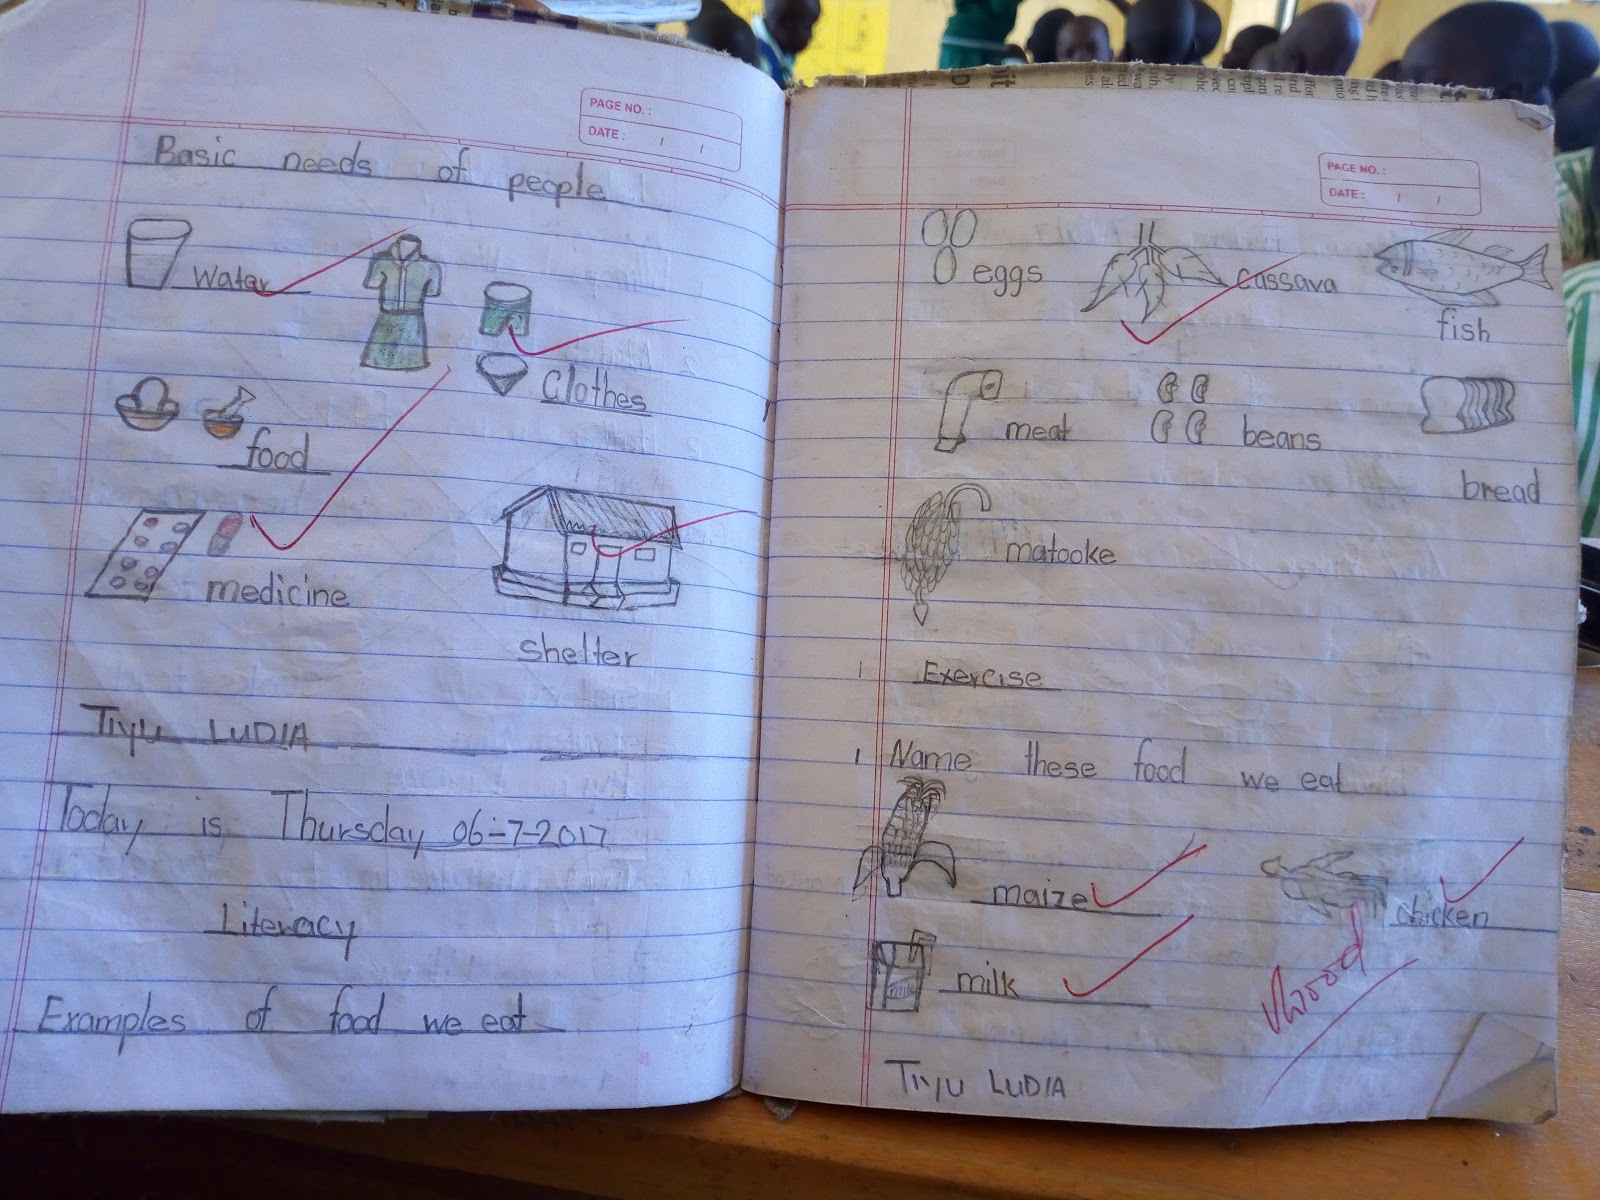 PAGE NO. :
DATE : / /
Basic needs of people
water
Clothes
food
medicine
shelter
TIYU LUDIA
Today is Thursday 06-7-2017
Literacy
Examples of food we eat
PAGE NO. :
DATE : / /
eggs
cassava
fish
meat
beans
bread
matooke
1 Exercise
1 Name these food we eat
maize
chicken
milk
TIYU LUDIA